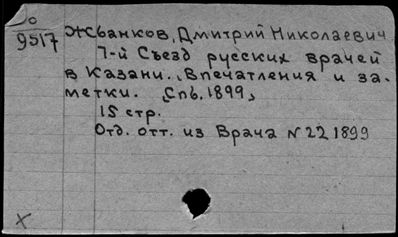 Ю
9517
Жбанков, Дмитрий Николаевич
7-й Съезд русских врачей
в Казани. Впечатления и за-
метки. Спб. 1899,
15 стр.
Отд. отт. из Врача N 22 1899
X